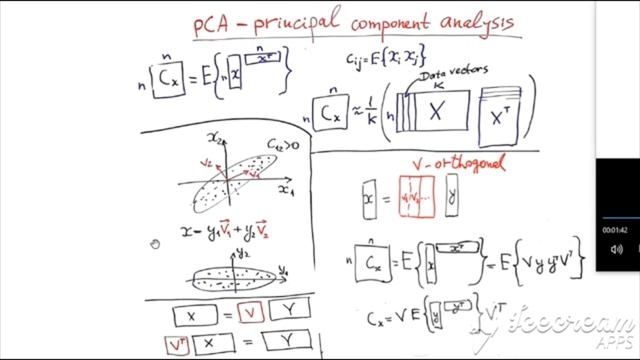 PCA – principal component analysis
n
n C_x = E{ n x x^T }
n
C_ij = E{x_i x_j}
Data vectors
K
n
n C_x ≈ 1/K ( n X X^T )
x_2
C_12>0
V_2
V_1
x_1
x – y_1 V_1 + y_2 V_2
y_2
y_1
X = V Y
V^T X = Y
V – orthogonal
x = V_1 V_2 ... y
n
n C_x = E{ x x^T } = E{ V y y^T V^T }
C_x = V E{ y y^T } V^T
00:01:42
Icecream
APPS